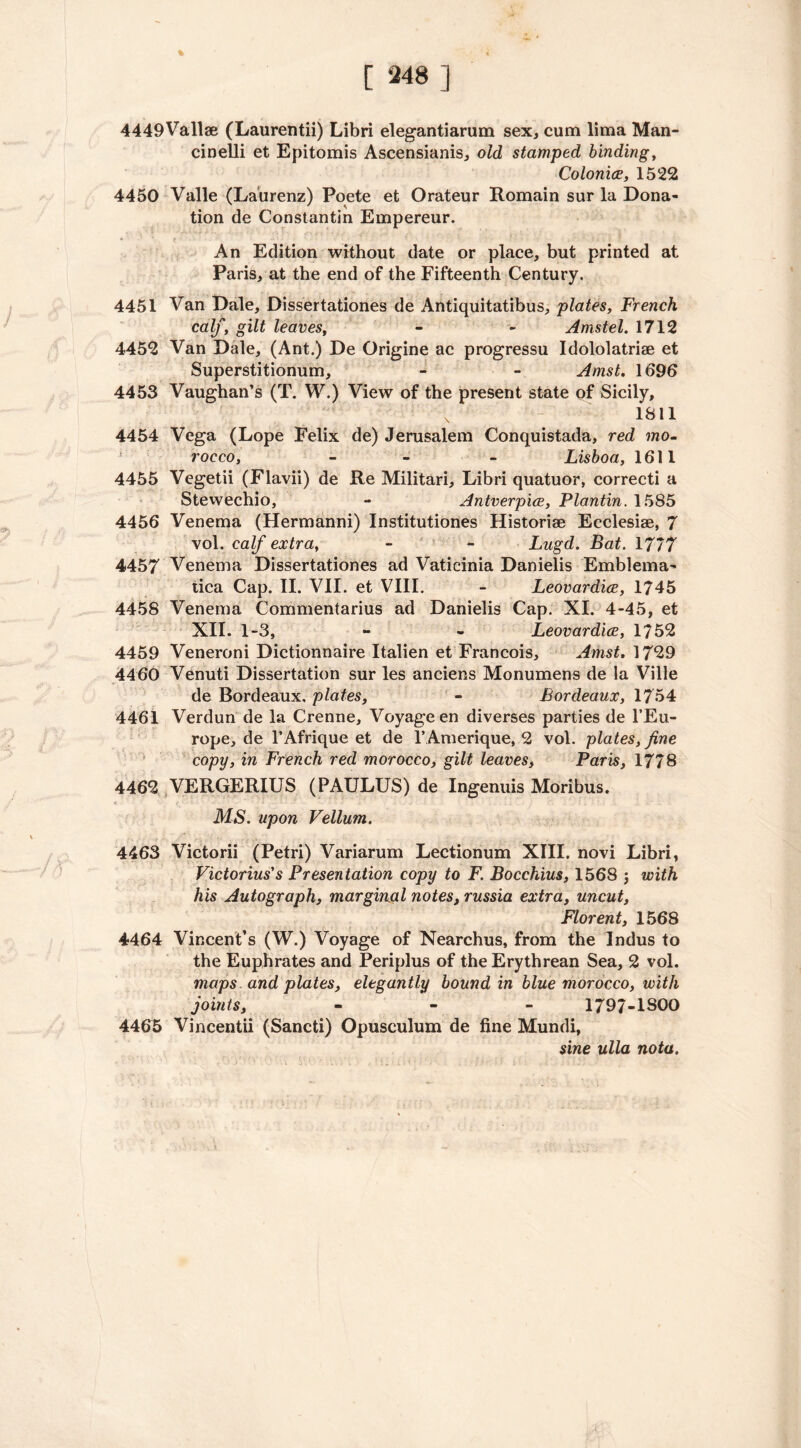 [ 248 ]
4449Vallæ (Laurentii) Libri elegantiarum sex, cum lima Man-
cinelli et Epitomis Ascensianis, old stamped binding,
Coloniæ, 1522
4450 Valle (Laurenz) Poete et Orateur Romain sur la Dona-
tion de Constantin Empereur.
An Edition without date or place, but printed at
Paris, at the end of the Fifteenth Century.
4451 Van Dale, Dissertationes de Antiquitatibus, plates, French
calf, gilt leaves, - - Amstel. 1712
4452 Van Dale, (Ant.) De Origine ac progressu Idololatriæ et
Superstitionum, - - Amst. 1696
4453 Vaughan's (T. W.) View of the present state of Sicily,
1811
4454 Vega (Lope Felix de) Jerusalem Conquistada, red mo-
rocco, - - - Lisboa, 1611
4455 Vegetii (Flavii) de Re Militari, Libri quatuor, correcti a
Stewechio, - Antverpiæ, Plantin. 1585
4456 Venema (Hermanni) Institutiones Historiæ Ecclesiæ, 7
vol. calf extra, - - Lugd. Bat. 1777
4457 Venema Dissertationes ad Vaticinia Danielis Emblema-
tica Cap. II. VII. et VIII. - Leovardiæ, 1745
4458 Venema Commentarius ad Danielis Cap. XI. 4-45, et
XII. 1-3, - - Leovardiæ, 1752
4459 Veneroni Dictionnaire Italien et Francois, Amst. 1729
4460 Venuti Dissertation sur les anciens Monumens de la Ville
de Bordeaux. plates, - Bordeaux, 1754
4461 Verdun de la Crenne, Voyage en diverses parties de l'Eu-
rope, de l'Afrique et de l'Amerique, 2 vol. plates, fine
copy, in French red morocco, gilt leaves, Paris, 1778
4462 VERGERIUS (PAULUS) de Ingenuis Moribus.
MS. upon Vellum.
4463 Victorii (Petri) Variarum Lectionum XIII. novi Libri,
Victorius's Presentation copy to F. Bocchius, 1568 ; with
his Autograph, marginal notes, russia extra, uncut,
Florent, 1568
4464 Vincent's (W.) Voyage of Nearchus, from the Indus to
the Euphrates and Periplus of the Erythrean Sea, 2 vol.
maps and plates, elegantly bound in blue morocco, with
joints, - - - 1797-1800
4465 Vincentii (Sancti) Opusculum de fine Mundi,
sine ulla nota.